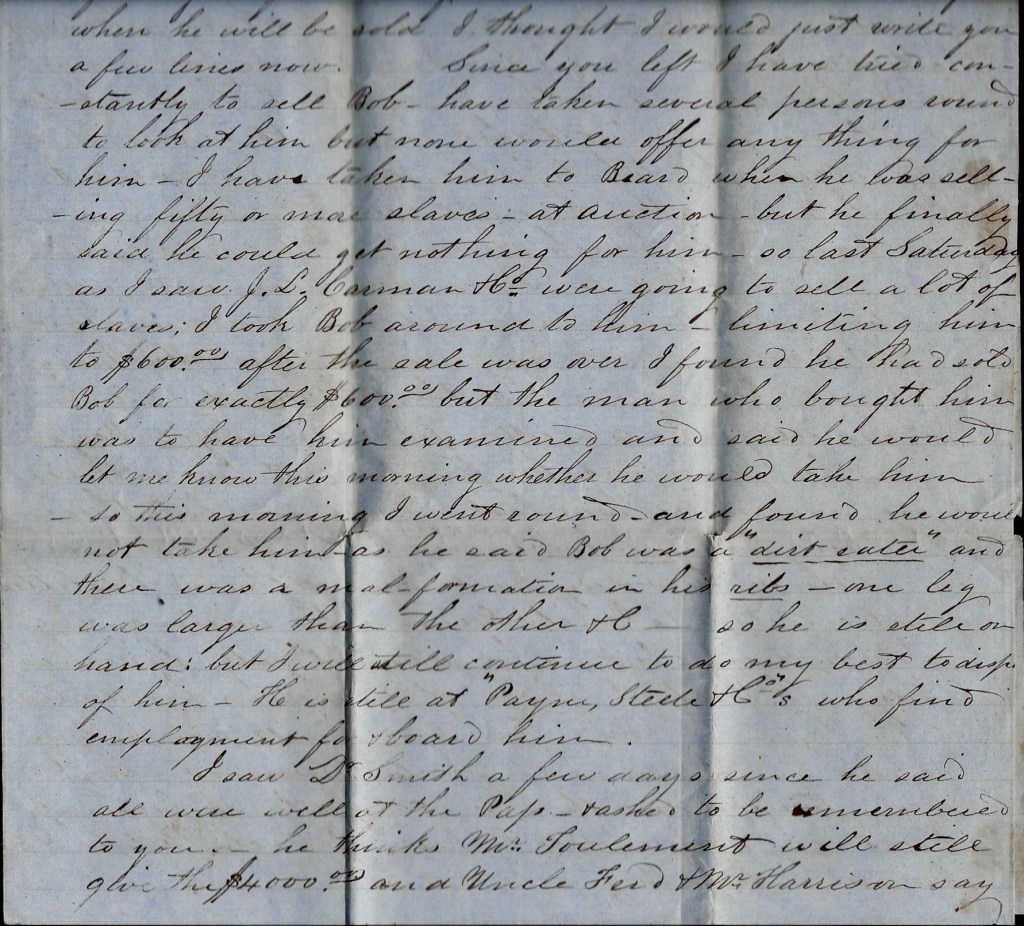 when he will be sold I thought I would just write you
a few lines now. Since you left I have tried con-
-stantly to sell Bob - have taken several persons round
to look at him but none would offer any thing for
him - I have taken him to Beard when he was sell-
-ing fifty or more slaves - at auction - but he finally
said he could get nothing for him - so last Saturday
as I saw J. L. Carman & Co. were going to sell a lot of
slaves; I took Bob around to him - limiting him
to $600.00 after the sale was over I found he had sold
Bob for exactly $600.00 but the man who bought him
was to have him examined and said he would
let me know this morning whether he would take him
- so this morning I went round - and found he woul
not take him - as he said Bob was a "dirt eater" and
there was a mal-formation in his ribs - one leg
was larger than the other &C - so he is still on
hand: but I will still continue to do my best to disp
of him - He is still at "Payne, Steele & Co"s who find
employment for & board him.
I saw Dr. Smith a few days since he said
all were well at the Pass - & asked to be remembered
to you. - he thinks Mr. Toulement will still
give the $4000.00 and Uncle Ferd & Mr. Harrison say